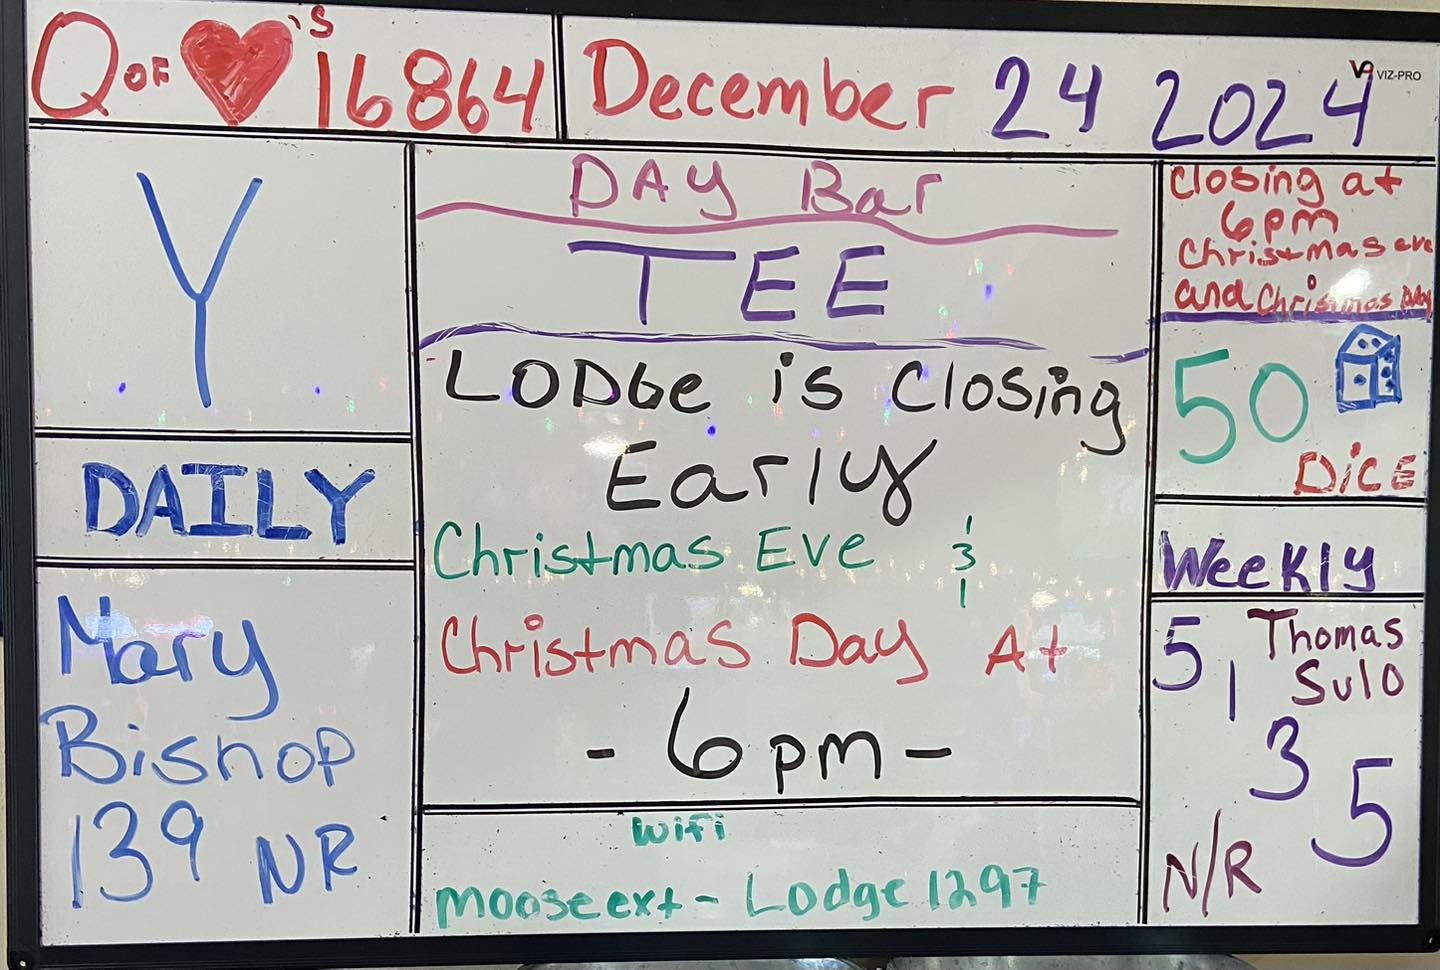 Q OF ♥'S 16864
December 24 2024
VIZ-PRO
Y
DAILY
Mary
Bishop
139 NR
DAY Bar
TEE
LODGe is Closing
Early
Christmas Eve &
Christmas Day At
- 6pm -
wifi
moose ext - Lodge 1297
Closing at
6pm
Christmas eve
and Christmas DAy
50
DicE
WeeKly
5, Thomas
Sulo
35
N/R